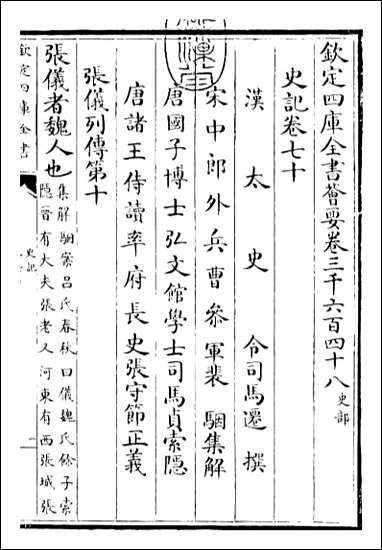 欽定四庫全書薈要卷三千六百四十八史部
史記卷七十
漢太史令司馬遷撰
宋中郎外兵曹參軍裴駰集解
唐國子博士弘文館學士司馬貞索隱
唐諸王侍讀率府長史張守節正義
張儀列傳第十
張儀者魏人也集解駰案吕氏春秋曰儀魏氏餘子索
隱晉有大夫張老又河東有西張城張
欽定四庫全書
史記
一